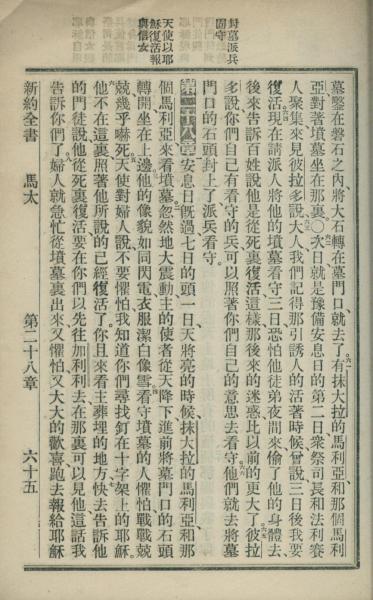 封墓派兵
固守
天使以耶
穌復活報
與信女
墓鑿在磐石之內、將大石轉在墓門口、就去了、有抹大拉的馬利亞、和那個馬利
亞、對著墳墓坐在那裏○次日就是豫備安息日的第二日、衆祭司長和法利賽
人、聚集來見彼拉多、說、大人、我們記得那引誘人的、活著時候曾說、三日後我要
復活、現在請派人將他的墳墓看守三日、恐怕他徒弟夜間來偷了他的身體去、
後來告訴百姓說、他是從死裏復活、這樣那後來的迷惑、比以前的更大了、彼拉
多說、你們自己有看守的兵、可以照著你們自己的意思去看守、他們就去將墓
門口的石頭封上了、派兵看守。
第二十八章 安息日旣過、七日的頭一日、天將亮的時候、抹大拉的馬利亞、和那
個馬利亞、來看墳墓、忽然地大震動、主的使者從天降下、進前將墓門口的石頭
轉開、坐在上邊、他的像貌如同閃電、衣服潔白像雪、看守墳墓的人懼怕、戰戰兢
兢、幾乎嚇死、天使對婦人說、不要懼怕、我知道你們尋找釘在十字架上的耶穌、
他不在這裏、照著他所說的已經復活了、你且來看主葬埋的地方、快去告訴他
的門徒說、他從死裏復活、要在你們以先往加利利去、在那裏可以見他、這話我
告訴你們了、婦人就急忙從墳墓裏出來、又懼怕、又大大的歡喜、跑去報給耶穌
新約全書 馬太 第二十八章 六十五